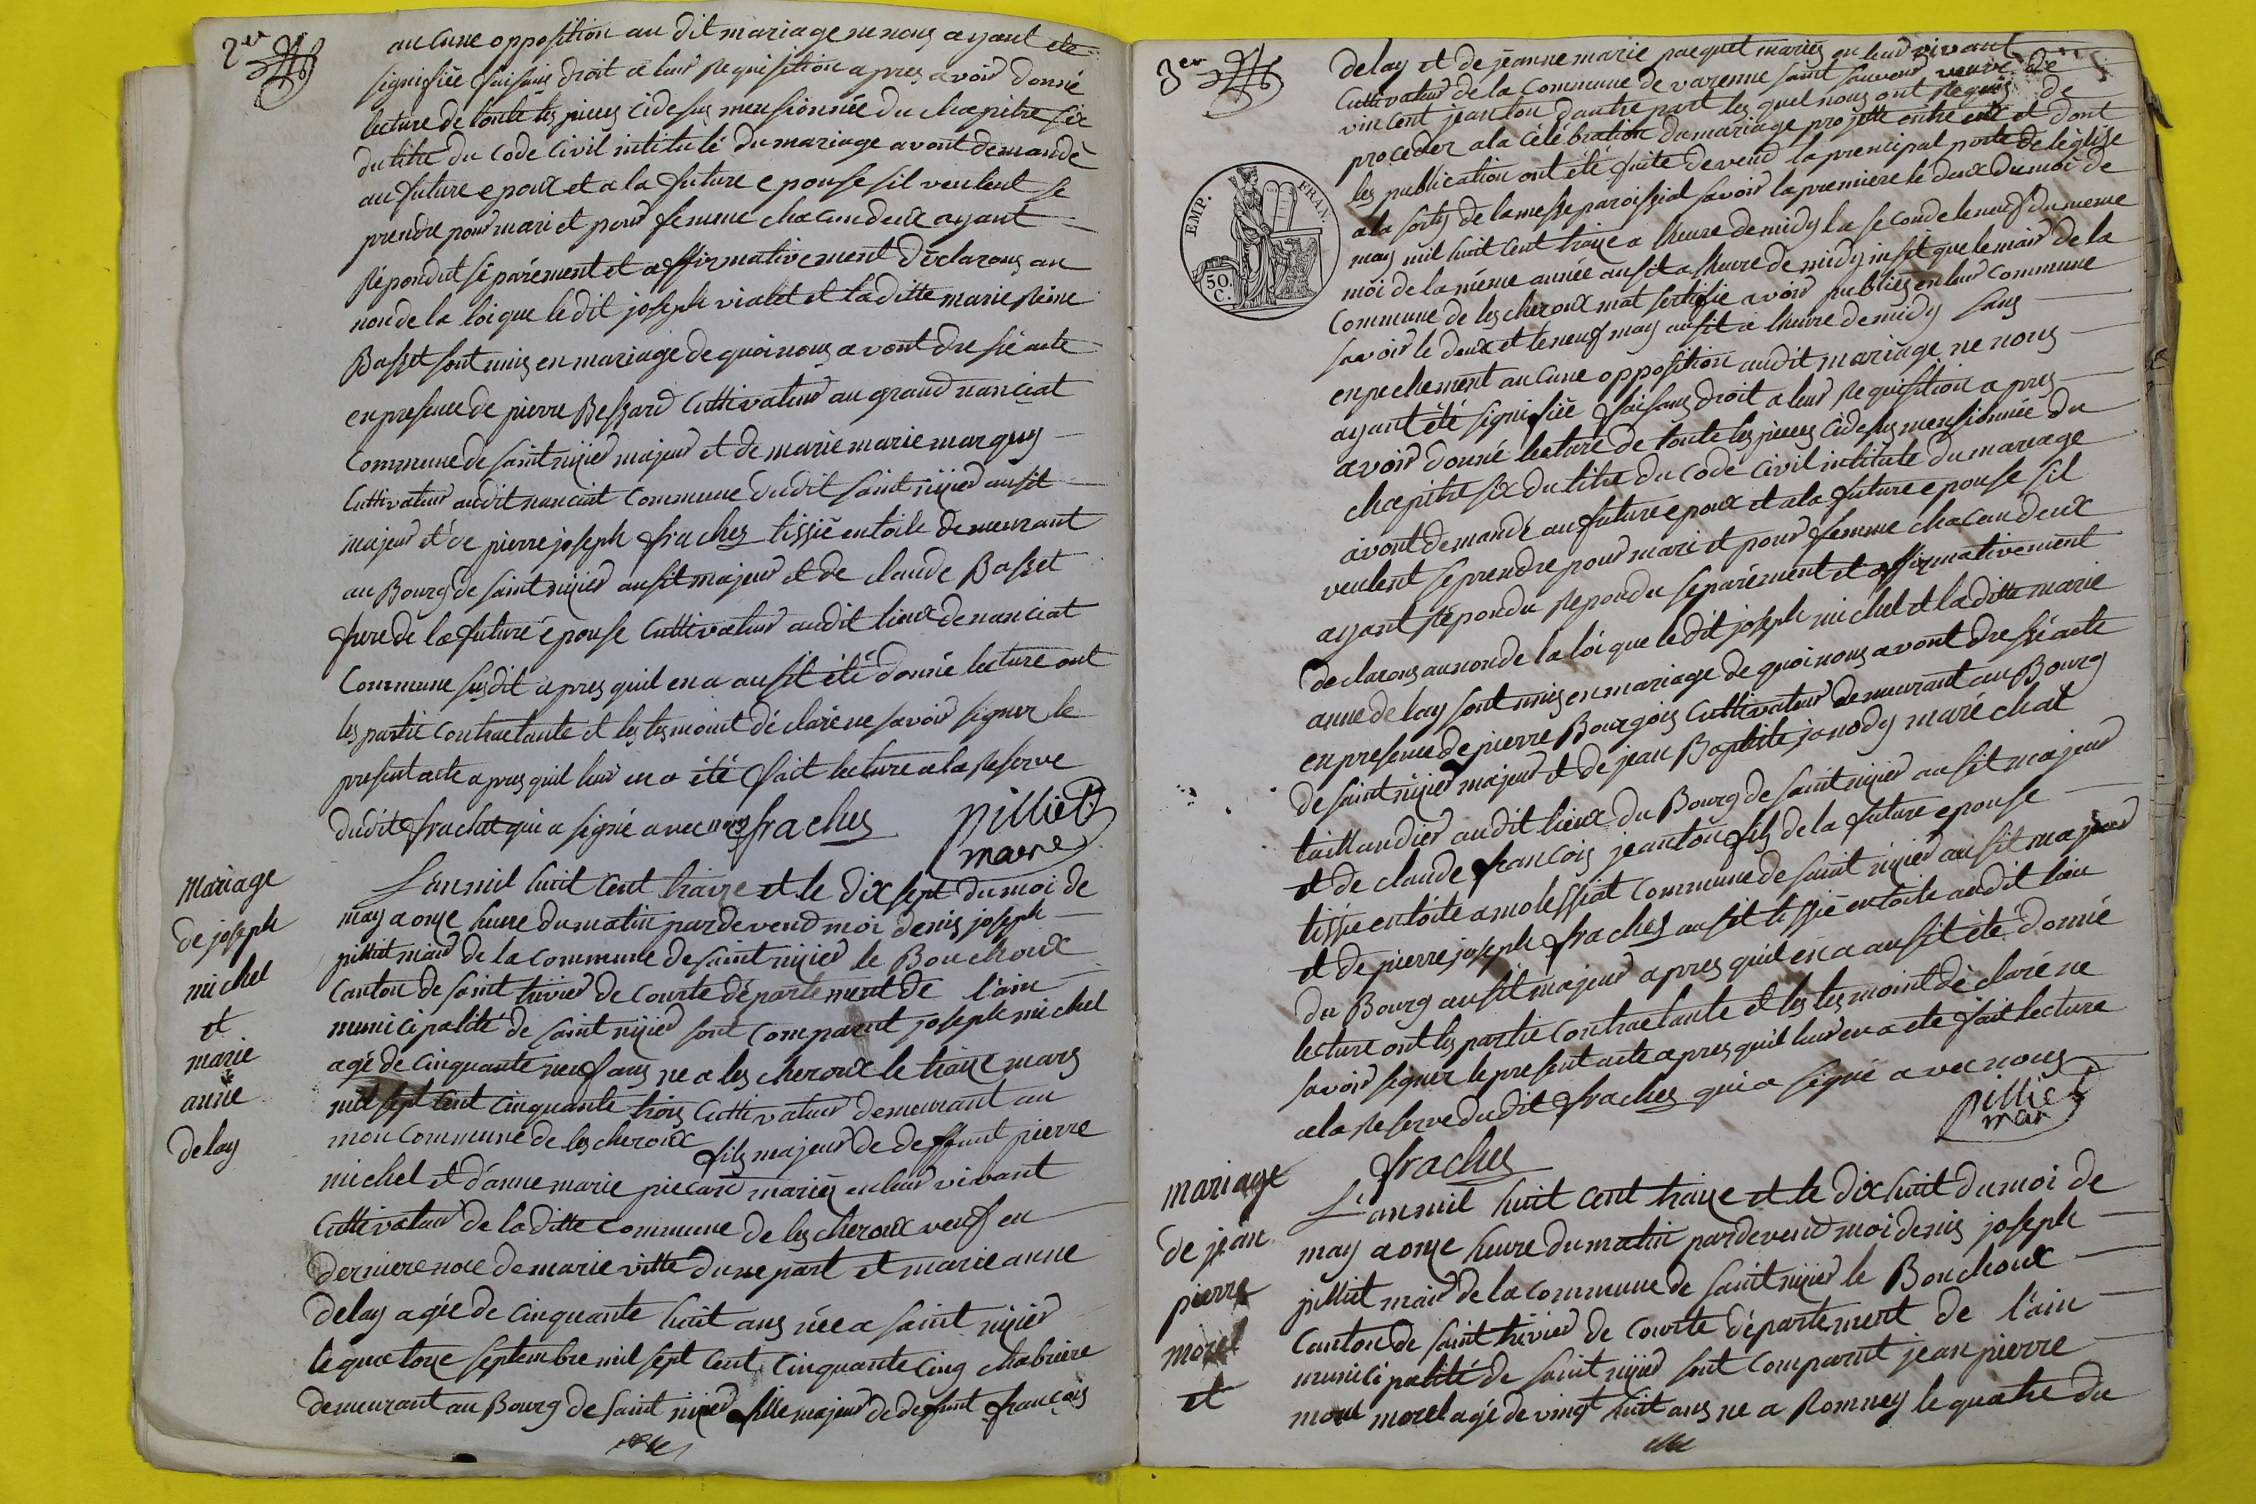 2er
aucune opposition au dit mariage ne nous ayant ete
signifiée faisans droit a leur requisition apres avoir donné
lecture de toute les pieces cidesus mensionnée du chapitre six
du titre du code civil intitulé du mariage avont demandé
au future epoux et a la future epouse sil veulent se
prendre pour mari et pour femme chacun deux ayant
répondut séparément et affirmativement déclarons au
non de la loi que le dit joseph vialet et la ditte marie Reine
Basset sont unis en mariage de quoi nous avont dressé acte
en presence de pierre Bessard Cuttivateur au grand nanciat
Commune de saint nizier majeur et de marie marie marguy
Cuttivateur audit nanciat commune dudit saint nizier ausit
majeur et de pierre joseph fraches tissié en toile demeurant
au Bourg de saint nizier ausit majeur et de claude Basset
frere de la future épouse Cuttivateur audit lieux de nanciat
Commune susdit apres quil en a ausit été donné lecture ont
les partie contractante et les tesmoint déclaré ne savoir signer le
present acte apres quil leur en a été fait lecture a la reserve
dudit frachet qui a signé avec nous fraches pilliet
maire
mariage
de joseph
michel
et
marie
anne
delay
L'an mil huit cent traize et le dix sept du moi de
may a onze heure du matin pardevend moi denis joseph
pilliet mair de la commune de saint nizier le Bouchoux
Canton de saint trivier de courte département de l'ain
municipalité de saint nizier sont comparut joseph michel
agé de cinquante neuf ans ne a les cheroux le traize mars
mil sept cent cinquante trois Cuttivateur demeurant au
mon commune de les cheroux fils majeur de deffunt pierre
michel et d'anne marie piecard mariés en leur vivant
Cuttivateur de la ditte commune de les cheroux veuf en
derniere noce de marie vitte dune part et marie anne
delay agée de cinquante huit ans née a saint nizier
le quatorze septembre mil sept cent cinquante cinq chabriere
demeurant au Bourg de saint nizier fille majeur de defunt françois
3er
delay et de jeanne marie pacquet mariés en leur vivant
Cuttivateur de la commune de varenne saint sauveur veuve de
vincent jeanton dautre part les quel nous ont requis de
proceder a la célébration du mariage projetté entre eux et dont
les publication ont été faite devend la prencipal porte de léglise
a la sorty de la messe paroissial savoir la premiere le deux du moi de
may mil huit cent traize a lheure de midy la seconde le neuf du meme
moi de la méme année ausit a lheure de midy insit que le mair de la
Commune de les cheroux mat sertifie avoir publiés en leur commune
savoir le deux et le neuf may ausit a lheure de midy sans
enpechement aucune opposition audit mariage ne nous
ayant été signifiée faisans droit a leur requisition apres
avoir donné lecture de toute les pieces cidesus mensionnée du
chapitre six du titre du code civil intitule du mariage
avont demandé au future epoux et a la future epouse sil
veulent se prendre pour mari et pour femme chacun deux
ayant répondu repondu séparément et affirmativement
declarons au non de la loi que le dit joseph michel et la ditte marie
anne delay sont unis en mariage de quoi nous avont dressé acte
en presence de pierre Bourgois Cuttivateur demeurant au Bourg
de saint nizier majeur et de jean Baptiste janody maréchat
taillandier audit lieux du Bourg de saint nizier ausit majeur
et de claude françois jeanton fils de la future epouse
tissie en toite a molessiat commune de saint nizier ausit majeur
et de pierre joseph fraches ausit tissié en toite audit lieu
du Bourg ausit majeur apres quil en a ausit été donné
lecture ont les partie contractante et les tesmoint déclaré ne
savoir signer le present acte apres quil leur en a ete fait lecture
a la reserve dudit fraches qui a signé avec nous
pilliet
mair
fraches
EMP. FRAN.
50.
C.
mariage
de jean
pierre
morel
et
L'an mil huit cent traize et le dix huit du moi de
may a onze heure du matin pardevend moi denis joseph
pilliet mair de la commune de saint nizier le Bouchoux
Canton de saint trivier de courte département de l'ain
municipalité de saint nizier sont comparut jean pierre
morel agé de vingt huit ans ne a Romney le quatre du